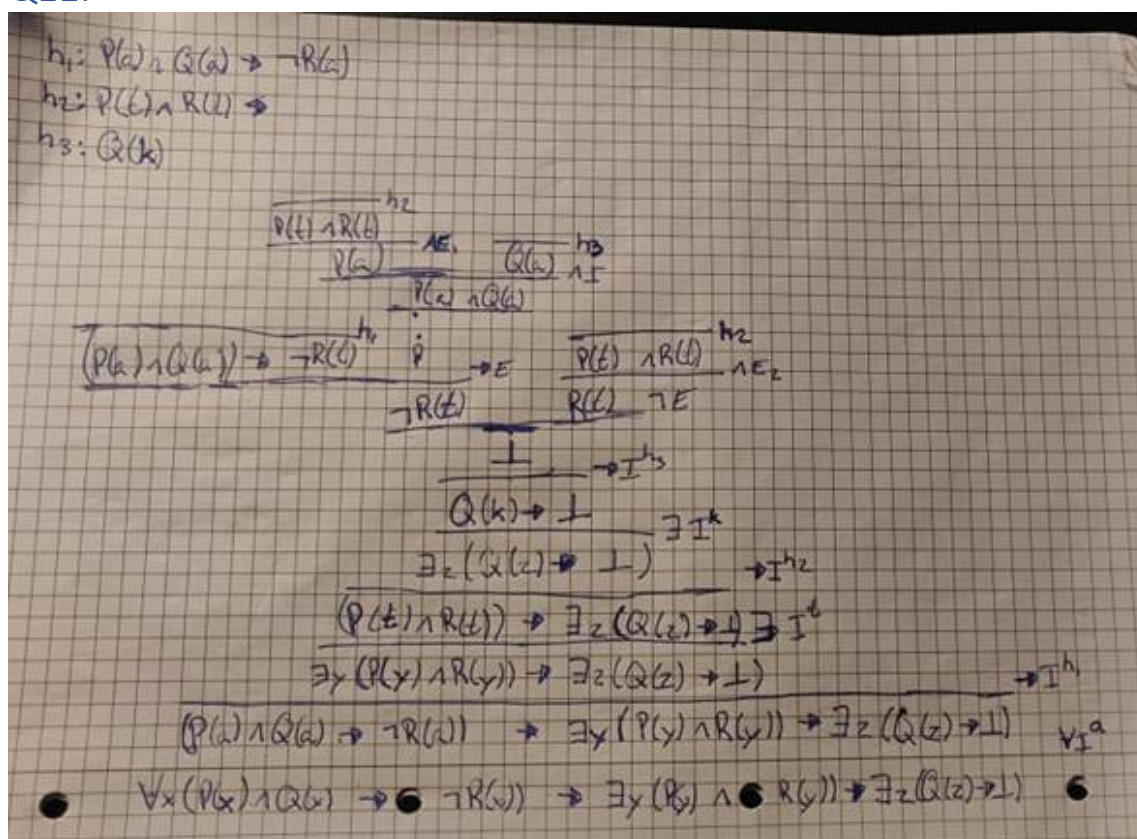 h₁: P(a) ∧ Q(a) → ¬R(a)
h₂: P(t) ∧ R(t) →
h₃: Q(k)
P(t) ∧ R(t) h₂
P(a) ∧E₁ Q(a) h₃
P(a) ∧ Q(a) ∧I
(P(a) ∧ Q(a)) → ¬R(t) h₁ →E P(t) ∧ R(t) h₂
¬R(t) R(t) ∧E₂
⊥ ¬E
Q(k) → ⊥ →I h₃
∃z(Q(z) → ⊥) ∃I k
(P(t) ∧ R(t)) → ∃z(Q(z) → ⊥) →I h₂
∃y(P(y) ∧ R(y)) → ∃z(Q(z) → ⊥) ∃I t
(P(a) ∧ Q(a) → ¬R(a)) → ∃y(P(y) ∧ R(y)) → ∃z(Q(z) → ⊥) →I h₁
∀x(P(x) ∧ Q(x) → ¬R(x)) → ∃y(P(y) ∧ R(y)) → ∃z(Q(z) → ⊥) ∀I a